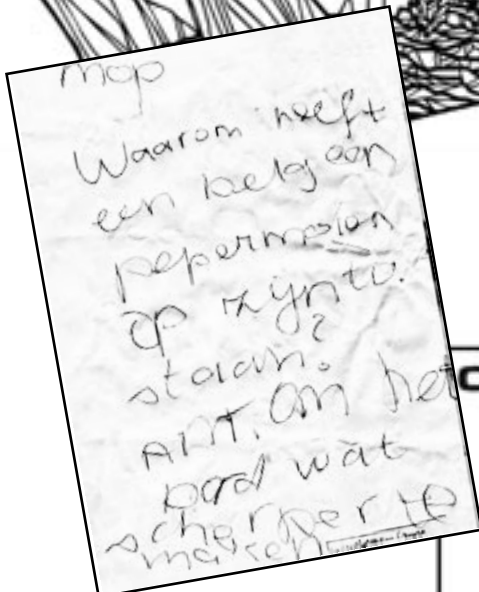 mop
Waarom heeft
een belg een
pepermolen
op zijn tv.
staan?
ANT. Om het
bad wat
scherper te
maken